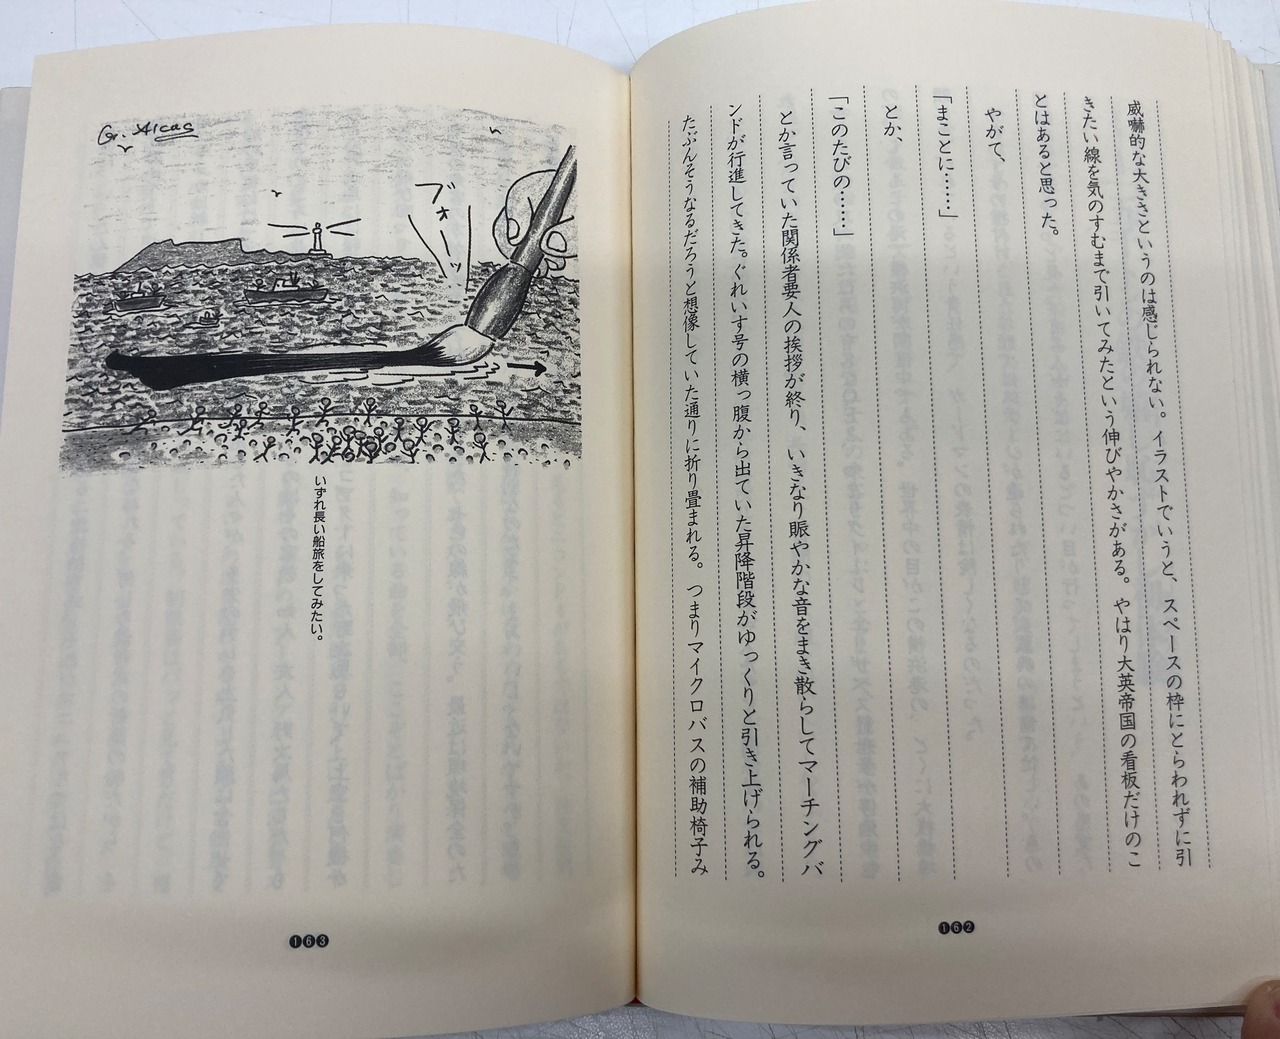 威嚇的な大きさというのは感じられない。イラストでいうと、スペースの枠にとらわれずに引
きたい線を気のすむまで引いてみたという伸びやかさがある。やはり大英帝国の看板だけのこ
とはあると思った。
やがて、
「まことに……」
とか、
「このたびの……」
とか言っていた関係者要人の挨拶が終り、いきなり賑やかな音をまき散らしてマーチングバ
ンドが行進してきた。ぐれいす号の横っ腹から出ていた昇降階段がゆっくりと引き上げられる。
たぶんそうなるだろうと想像していた通りに折り畳まれる。つまりマイクロバスの補助椅子み
162
Gr. Alcas
ブォーッ
いずれ長い船旅をしてみたい。
163